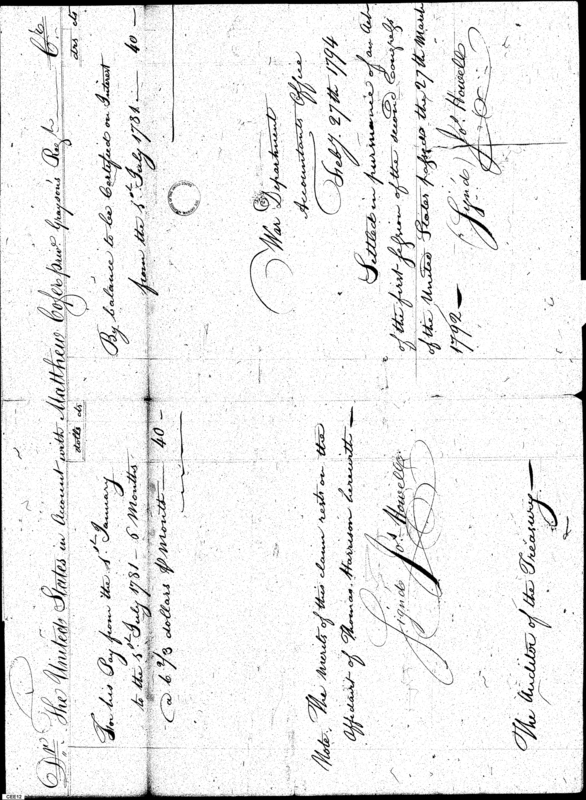 Dr. The United States in Account with Matthew Cofer priv. Grayson's Regt. Cr.
dolls cts
For his Pay from the 1st January
to the 1st July 1781 - 6 Months
@ 6 2/3 dollars ₱ Month — 40 —
drs cts
By balance to be Certified on Interest
from the 1st July 1781 — 40 —
Note. The merits of this claim rests on the
Affidavit of Thomas Harrison herewith —
Signd Jos. Howell
The Auditor of the Treasury —
War Department
Accountants Office
Feby. 27th 1794
Settled in pursuance of an Act
of the first session of the second Congress
of the United States passed the 27th March
1792 —
Signd Jos. Howell